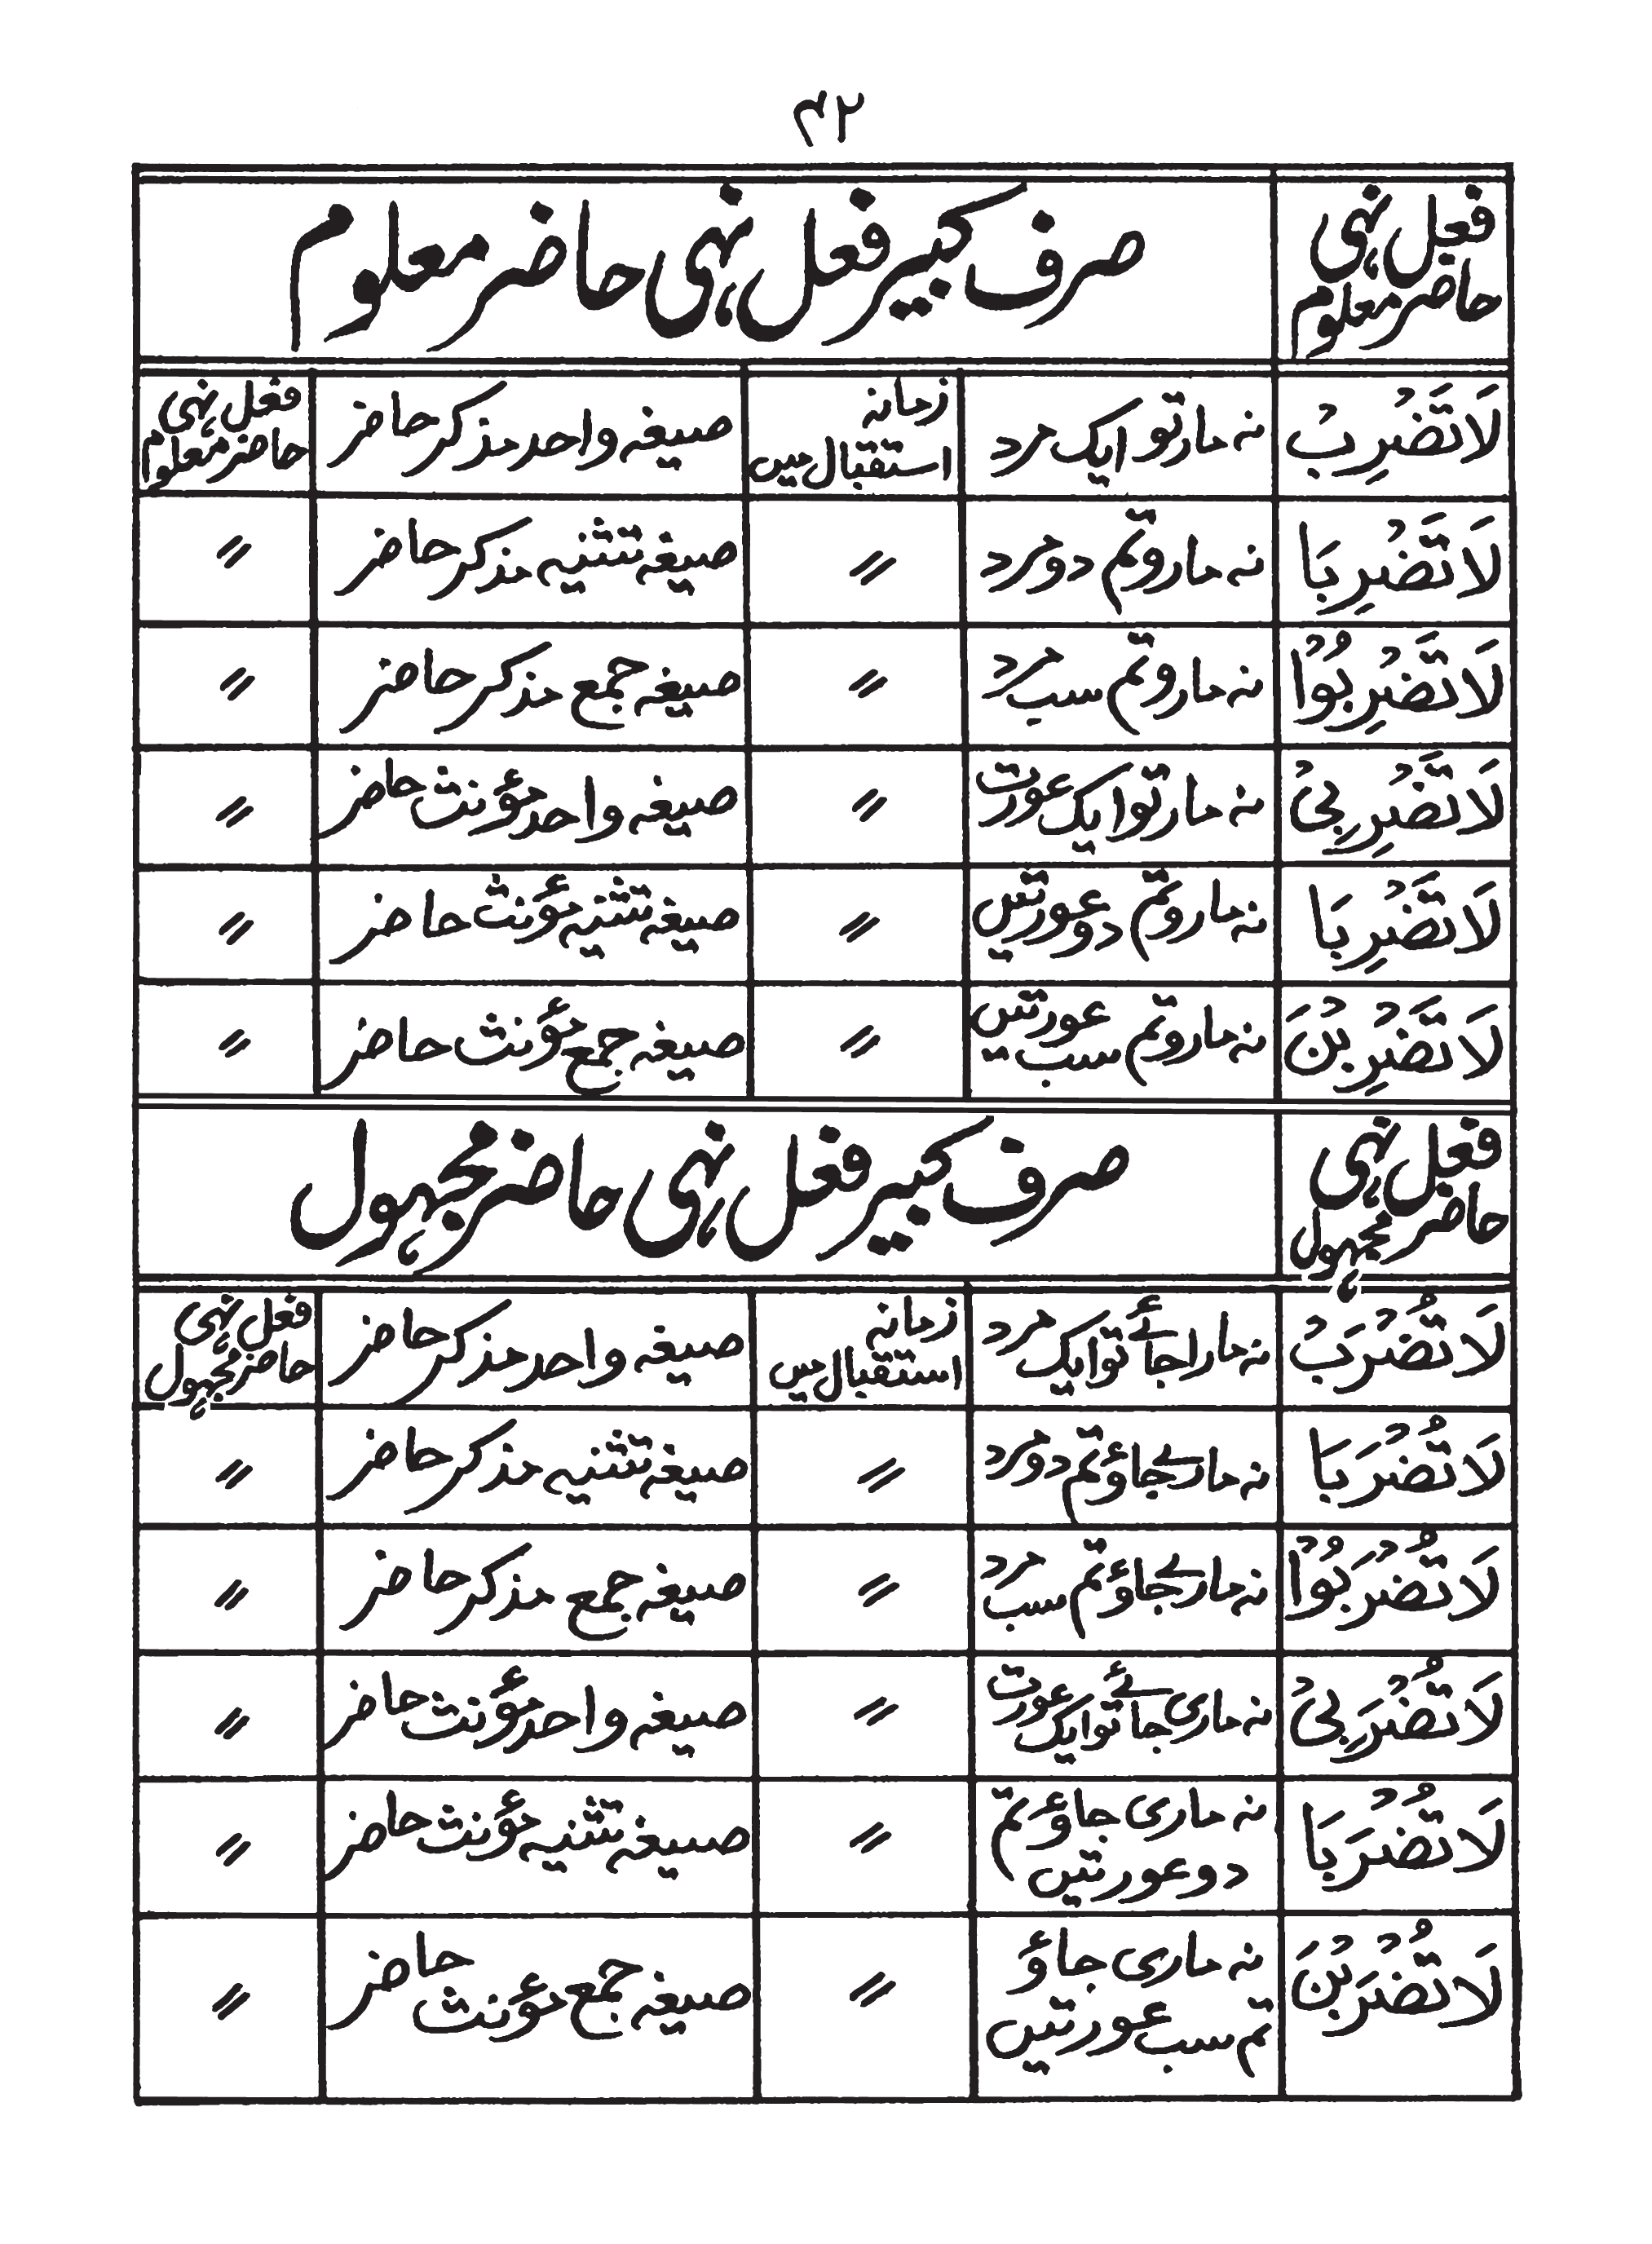 ۴۲
فعل نہی حاضر معلوم	صرف کبیر فعل نہی حاضر معلوم
لَا تَضْرِبْ	نہ مار تو ایک مرد	زمانہ استقبال میں	صیغہ واحد مذکر حاضر	فعل نہی حاضر معلوم
لَا تَضْرِبَا	نہ مارو تم دو مرد	〃	صیغہ تثنیہ مذکر حاضر	〃
لَا تَضْرِبُوْا	نہ مارو تم سب مرد	〃	صیغہ جمع مذکر حاضر	〃
لَا تَضْرِبِیْ	نہ مار تو ایک عورت	〃	صیغہ واحد مؤنث حاضر	〃
لَا تَضْرِبَا	نہ مارو تم دو عورتیں	〃	صیغہ تثنیہ مؤنث حاضر	〃
لَا تَضْرِبْنَ	نہ مارو تم سب عورتیں	〃	صیغہ جمع مؤنث حاضر	〃
فعل نہی حاضر مجہول	صرف کبیر فعل نہی حاضر مجہول
لَا تُضْرَبْ	نہ مارا جائے تو ایک مرد	زمانہ استقبال میں	صیغہ واحد مذکر حاضر	فعل نہی حاضر مجہول
لَا تُضْرَبَا	نہ مارے جاؤ تم دو مرد	〃	صیغہ تثنیہ مذکر حاضر	〃
لَا تُضْرَبُوْا	نہ مارے جاؤ تم سب مرد	〃	صیغہ جمع مذکر حاضر	〃
لَا تُضْرَبِیْ	نہ ماری جائے تو ایک عورت	〃	صیغہ واحد مؤنث حاضر	〃
لَا تُضْرَبَا	نہ ماری جاؤ تم دو عورتیں	〃	صیغہ تثنیہ مؤنث حاضر	〃
لَا تُضْرَبْنَ	نہ ماری جاؤ تم سب عورتیں	〃	صیغہ جمع مؤنث حاضر	〃